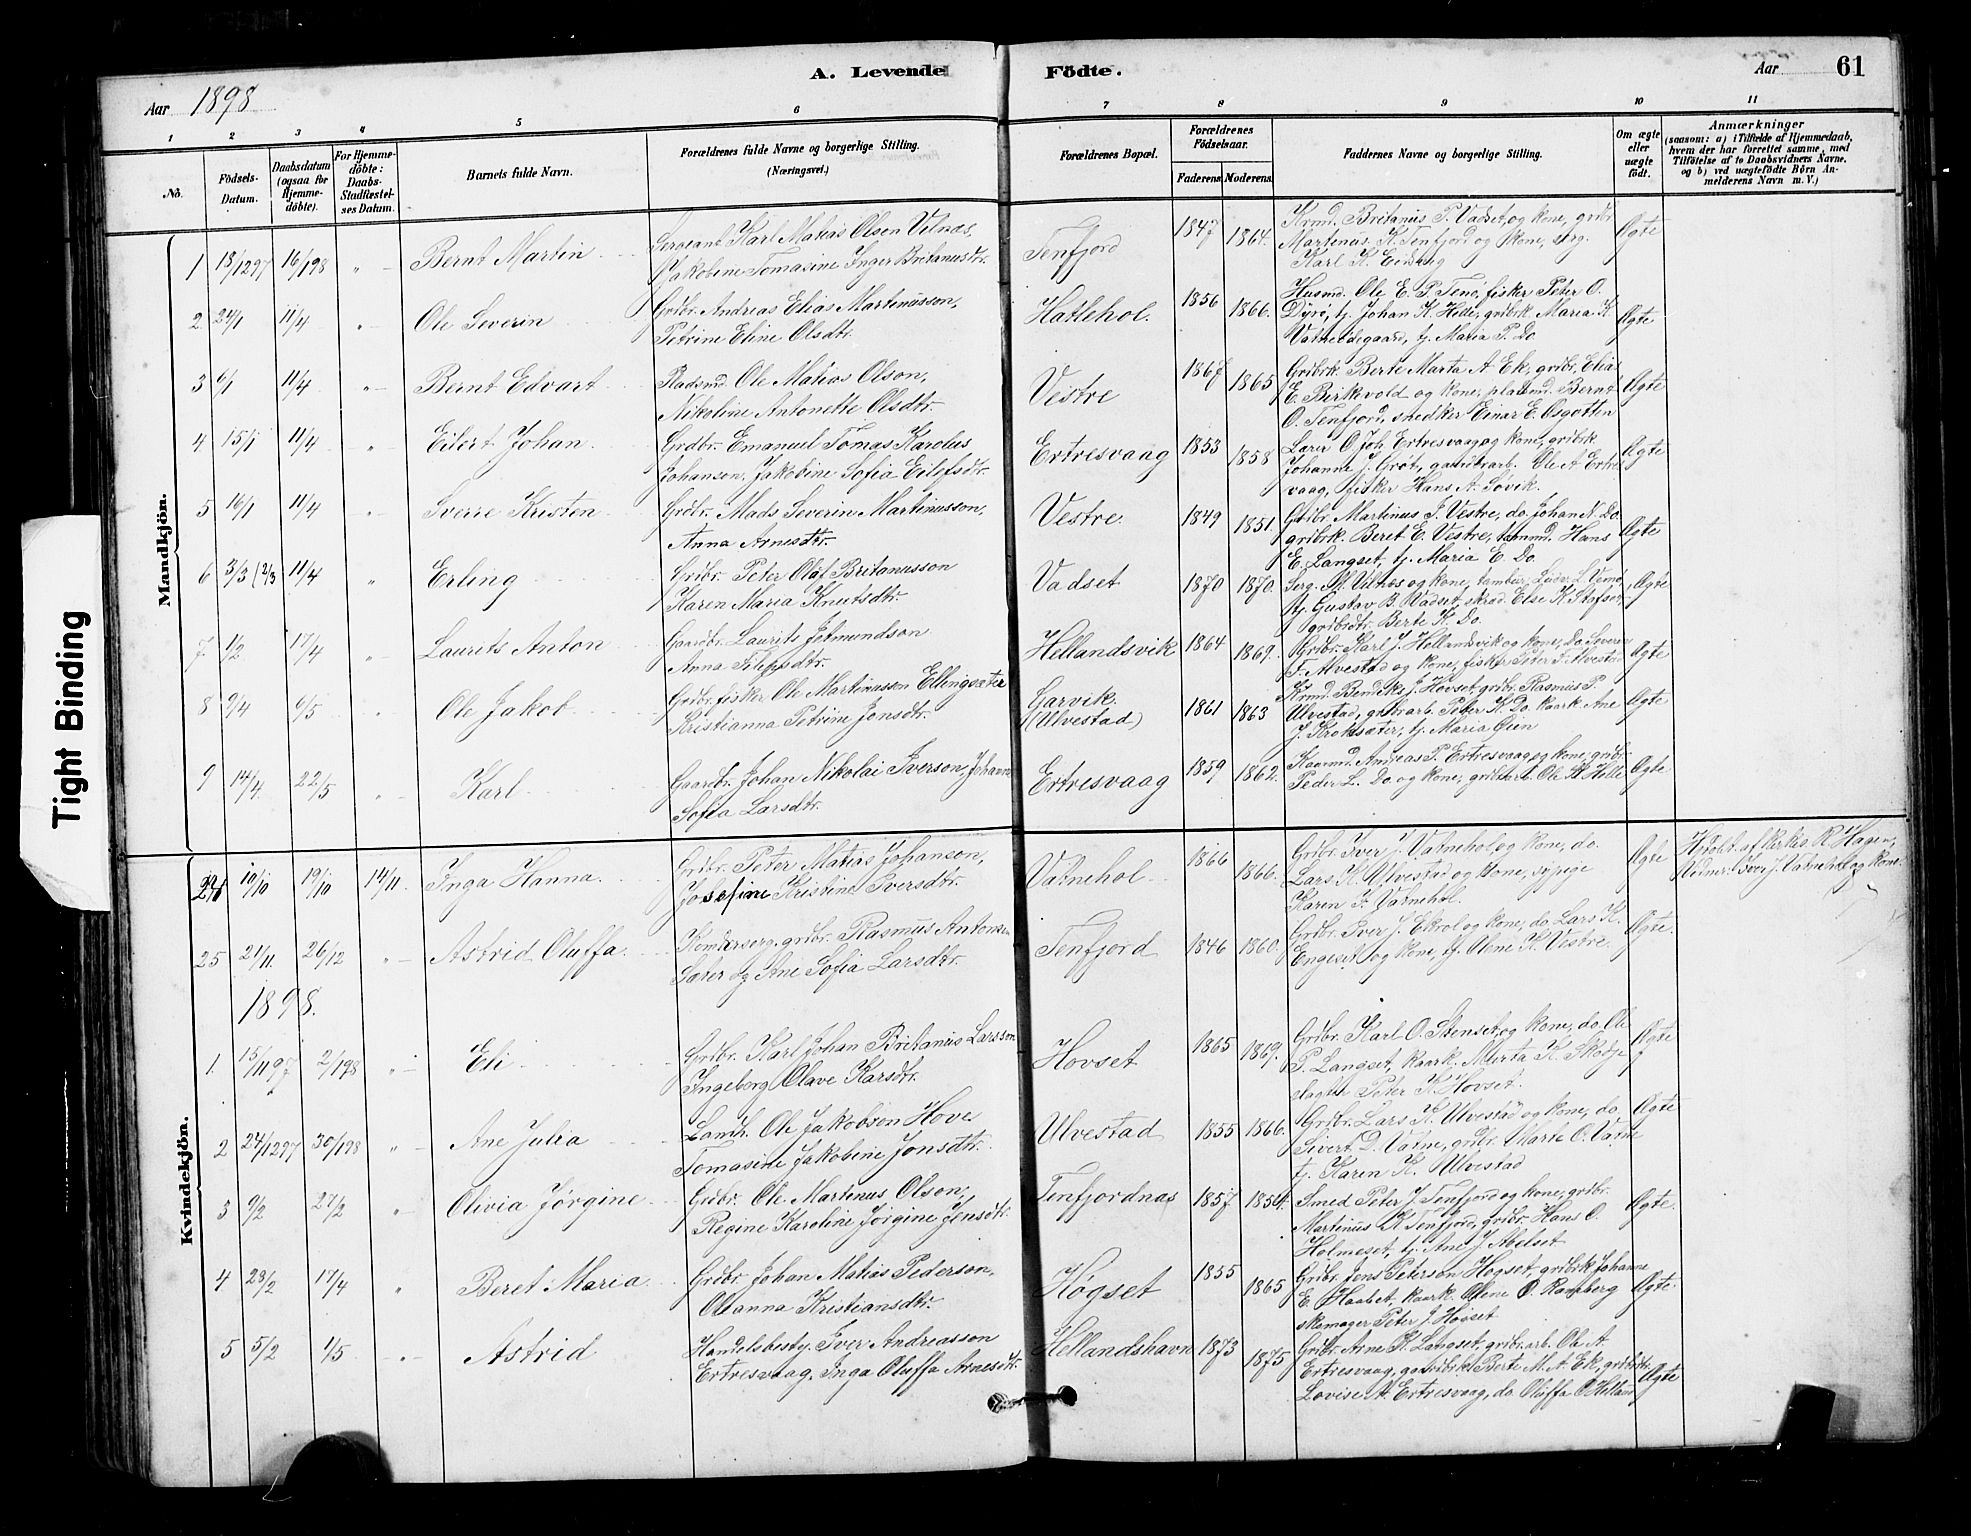 A. Levende Födte.
Aar 1898
Aar 61
1 2 3 4 5 6 7 8 9 10 11
No.
Födsels-Datum.
Daabsdatum (ogsaa for Hjemme-döbte).
For Hjemme-döbte: Daabs-Stadfæstel-ses Datum.
Barnets fulde Navn.
Forældrenes fulde Navne og borgerlige Stilling. (Næringsvei.)
Forældrenes Bopæl.
Forældrenes Födselsaar.
Faderens Moderens.
Faddernes Navne og borgerlige Stilling.
Om ægte eller uægte födt.
Anmærkninger
(saasom: a) i Tilfælde af Hjemmedaab, hvem der har forrettet samme, med Tilföielse af to Daabsvidners Navne, og b) ved uægtefödte Börn An-melderens Navn m. V.)
Mandkjön.
1 18/12 97 16/1 98 " Bernt Martin Sergeant Karl Matias Olsen Vilnæs, Jakobine Tomasine Inger Britanusdtr. Tenfjord 1847 1864. Krmd. Britanus P. Vadset og kone, grdbr. Martinus K. Tenfjord og kone, serg. Karl K. Ægte
2. 24/1 11/4 " Ole Severin Grdbr. Andreas Elias Martinusson, Petrine Eline Olsdtr. Hatlehol. 1856 1866. Husmd. Ole E. P. fisker Peter O. Dyrø, tj. Johan K. Helle, grdbrk. Maria K. tj. Maria P. Do Ægte
3 6/1 11/4 " Bernt Edvart Ole Matias Olson, Nikoline Antonette Olsdtr. Vestre 1867 1865 Grdbrk. Berte Marta A. Ek, grdbr. Elias E. Birkevold og kone, pladsmd. Bernt O. Tenfjord, snedker Einar E. Ægte
4 15/1 11/4 " Eilert Johan Grdbr. Emanuel Tomas Karolus Johanson, Jakobine Sofia Eilefsdtr. Ertresvaag 1853 1858 Lærer O. Joh. Ertresvaag og kone, grdbrk. Johanne J. Grøt, gaardbrarb. Ole A. Ertresvaag, fisker Hans A. Søvik. Ægte
5 16/1 11/4 " Sverre Kristen Grdbr. Mads Severin Martinusson, Anna Arnesdtr. Vestre. 1849 1851. Grdbr. Martinus J. Vestre, do. Johan N. Do. grdbrk. Beret E. Vestre, Hans E. Langset, tj. Maria E. Do. Ægte
6 3/3 (2/3 11/4 " Erling Grdbr. Peter Olaf Britanusson Karen Maria Knutsdtr. Vadset 1870 1870. Serg. M. Vilnæs og kone, tambur Ludv. L. tj. Gustav B. Vadset, skræd. Else K. grdbrdtr. Berte K. Do. Ægte
7 1/2 17/4 " Laurits Anton Gaardbr. Laurits Jetmundson Anna Filipsdtr. Hellandsvik 1864 1869. Grdbr. Karl J. Hellandsvik og kone, Do. Severin F. Alvestad og kone, fisker Peter F. Alvestad Ægte
8 9/4 6/5 " Ole Jakob Grdbr. fisker Ole Martinusson Ellingsæter Kristianna Petrine Jonsdtr. Larvik. (Ulvestad) 1861 1863 Krmd. Bendiks J. Hovset, grdbr. Rasmus P. Ulvestad, grdbrarb. Peter K. Do. kaark. Ane J. Kroksæter, tj. Maria Gjen Ægte
9 14/4. 22/5 " Karl Gaardbr. Johan Nikolai Iverson, Johanne Sofia Larsdtr. Ertresvaag 1859 1862. Kaarmd. Andreas P. Ertresvaag og kone, grdbr. Peder L. Do og kone, grdbrarb. Ole K. Helle Ægte
Kvindekjön.
24 10/10 19/10 14/11 Inga Hanna. Grdbr. Peter Matias Johanson, Josefine Kristine Iversdtr. Vatnehol 1866 1866. Grdbr. Iver J. Vatnehol og kone, do. Lars K. Ulvestad og kone, sypige Karen I. Vatnehol. Ægte Hjdøbt. af kirkes. R. Hagen, Vidner: Iver J. Vatnehol og kone.
25 21/11. 26/12 " Astrid Oluffa. grdbr. Rasmus Antonsen Sæter og Ane Sofia Larsdtr. Tenfjord 1846 1860. Grdbr. Iver J. Ekrol og kone, do. Lars K. Engeset og kone, tj. Oline K. Vestre. Ægte.
1898.
1. 15/11 97 2/1 98 " Eli Grdbr. Karl Johan Britanus Larsson Ingeborg Olave Larsdtr. Hovset 1865 1869. Grdbr. Karl O. Stenset og kone, do. Ole P. Langset, kaark. Marta K. Skodje slagter Peter K. Hovset. Ægte
2 24/12 97 30/1 98 " Ane Julia Landh. Ole Jakobson Hove Tomasine Jakobine Jonsdtr. Ulvestad 1855 1866. Grdbr. Lars K. Ulvestad og kone, do. Sivert D. Vatne, grdbr. Marte O. Vatne tj. Karen K. Ulvestad Ægte
3 9/2 27/2 " Olivia Jørgine Grdbr. Ole Martinus Olson, Regine Karoline Jørgine Jensdtr. Tenfjordnæs 1857. 1854. Smed Peter J. Tenfjord og kone, grdbr. Martinus K. Tenfjord, grdbr. Hans O. Holmeset, tj. Ane J. Abelset Ægte.
4 28/2 17/4 " Beret Maria Grdbr. Johan Matias Pederson, Olianna Kristiansdtr. Høgset 1855 1865 Grdbr. Jens Peterson Høgset, grdbrk. Johanne E. Haabet, kaark. Oline O. Ramberg skomager Peter J. Hovset Ægte.
5 5/2 1/5 " Astrid Handelsbesty. Iver Andreasson Ertresvaag, Inga Oluffa Arnesdtr. Hellandshavn 1873 1875 Grdbr. Arne K. Langset, grdbr.arb. Ole A. Ertresvaag, gaardbrk. Berte M. A. Ek, grdbrdtr. Lovise A. Ertresvaag, do. Oluffa O. Helland Ægte
Tight Binding